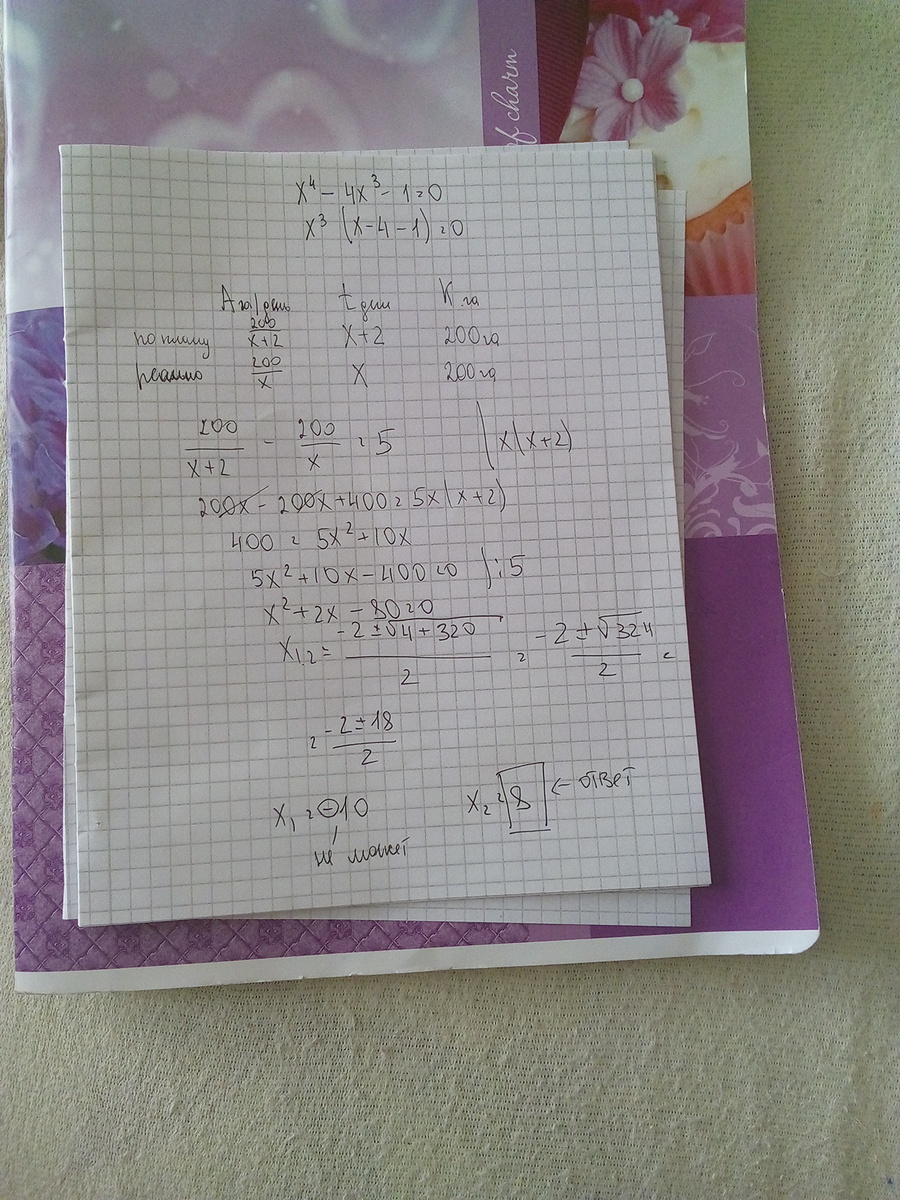 of charm
x⁴ - 4x³ - 1 = 0
x³ (x - 4 - 1) = 0
A га/день t дни K га
по плану 200/(x+2) x+2 200га
реально 200/x x 200га
200/(x+2) - 200/x = 5 | x(x+2)
200x - 200x + 400 = 5x(x+2)
400 = 5x² + 10x
5x² + 10x - 400 = 0 ) : 5
x² + 2x - 80 = 0
x₁,₂ = (-2 ± √(4 + 320))/2 = (-2 ± √324)/2 =
= (-2 ± 18)/2
x₁ = -10 x₂ = 8 ← ответ
не может